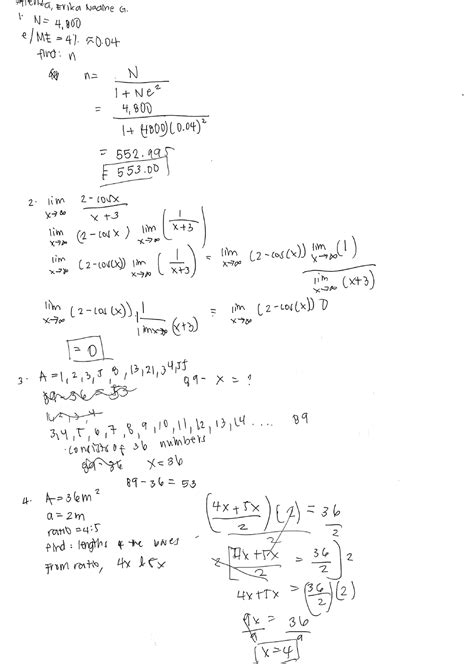 Erika Nadine G.
1. N = 4,800
e/ME = 4% ≈ 0.04
find: n
n = N
1 + Ne²
= 4,800
1 + (4800)(0.04)²
= 552.995
= 553.00
2. lim 2-cosx
x→∞ x+3
lim (2-cosx) lim (1/x+3)
x→∞ x→∞
lim (2-cos(x)) lim (1/x+3) = lim (2-cos(x)) lim (1)
x→∞ x→∞ x→∞ x→∞
lim (x+3)
x→∞
lim (2-cos(x)) 1 = lim (2-cos(x)) 0
x→∞ lim x→∞ (x+3) x→∞
= 0
3. A = 1,2,3,5,8,13,21,34,55 89 - x = ?
89-36 = 53
3,4,5,6,7,8,9,10,11,12,13,14 .... 89
consists of 36 numbers
89-36 x = 36
89-36 = 53
4. A = 36m²
a = 2m
ratio = 4:5
find: lengths of the bases
From ratio, 4x & 5x
(4x+5x / 2) (2) = 36 / 2
4x+5x / 2 = (36 / 2) 2
4x+5x = (36 / 2) (2)
9x / 9 = 36 / 9
x = 4